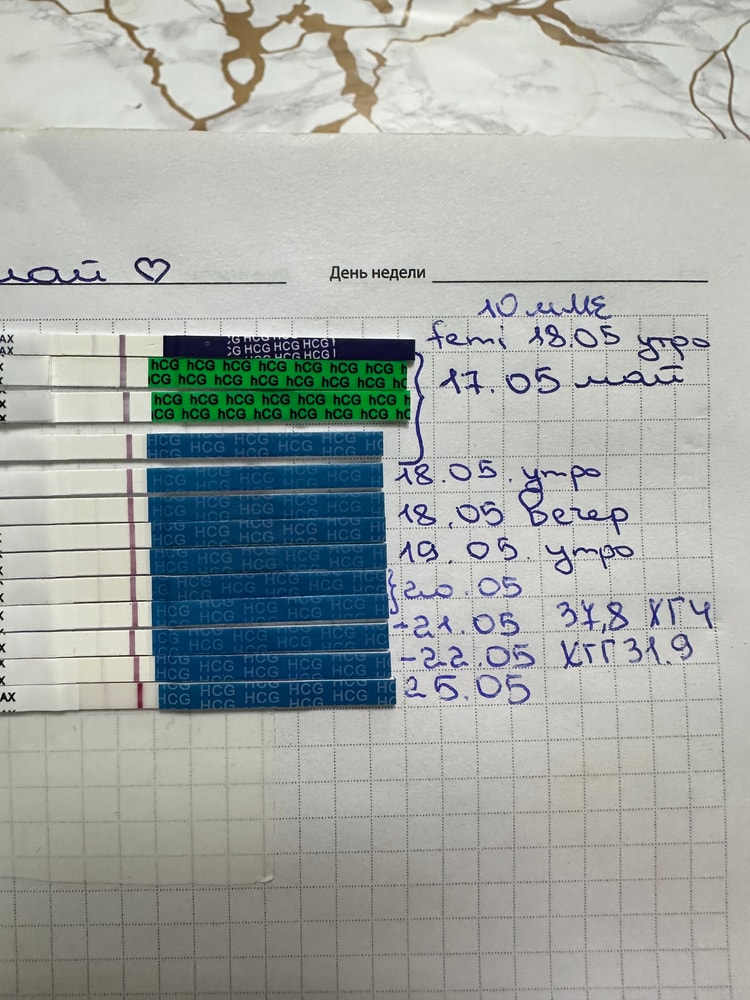 май ♡ День недели
10 мМЕ
femi 18.05 утро
17.05 май
18.05. утро
18.05 Вечер
19.05. утро
20.05
-21.05 37,8 ХГЧ
-22.05 ХГГ 31.9
25.05
AX HCG HCG HCG HCG
AX HCG HCG HCG HCG
X hCG hCG hCG hCG hCG hCG hCG
X hCG hCG hCG hCG hCG hCG hCG
X hCG hCG hCG hCG hCG hCG hCG
X hCG hCG hCG hCG hCG hCG hCG
HCG HCG HCG HCG HCG
HCG HCG HCG HCG
HCG HCG HCG HCG
HCG HCG HCG HCG
HCG HCG HCG HCG
HCG HCG HCG HCG
HCG HCG HCG HCG
X HCG HCG HCG HCG
AX HCG HCG HCG HCG